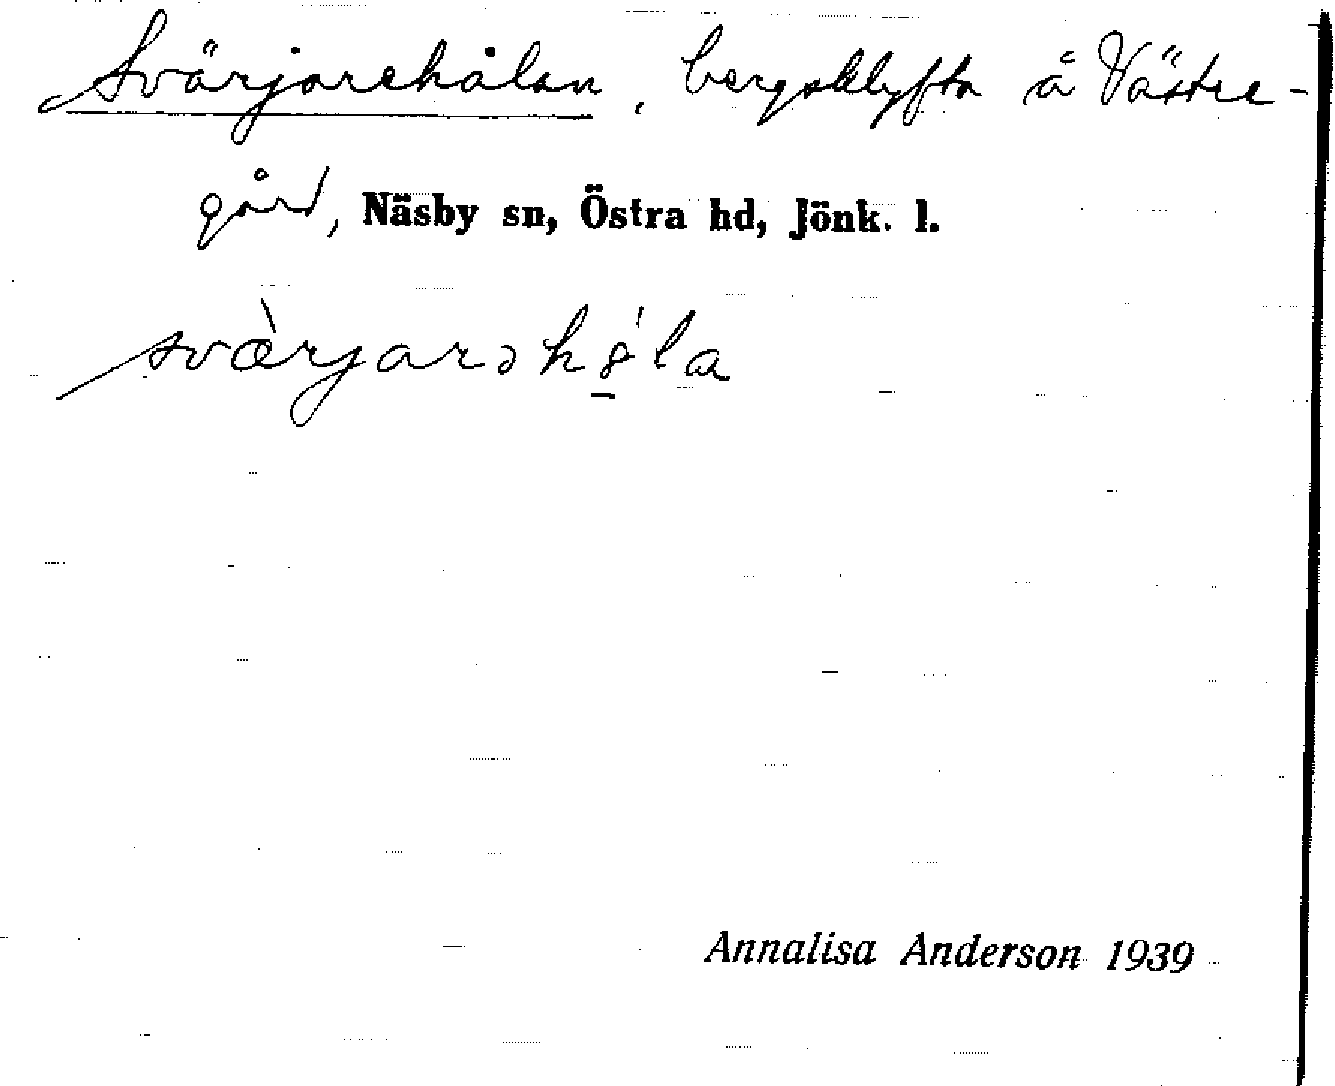 Svärjarehålan, bergsklyfta å Västre-
gård, Näsby sn, Östra hd, Jönk. l.
svæ̀rjarəhǫ̀la
Annalisa Anderson 1939